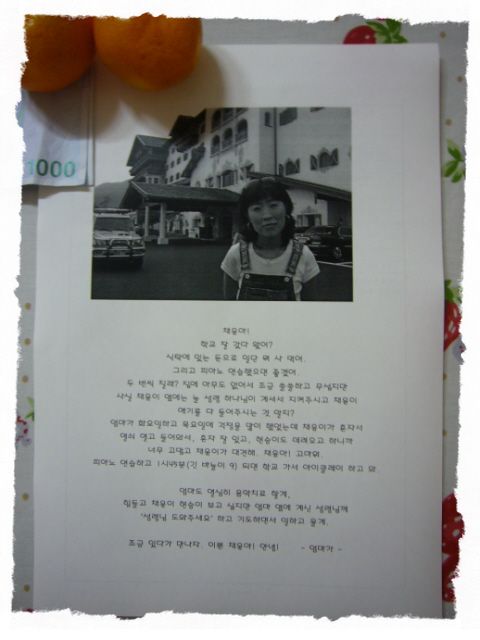 1000
채윤아!
학교 잘 갔다 왔어?
식탁에 있는 돈으로 일단 뭐 사 먹어.
그리고 피아노 연습했으면 좋겠어.
두 번씩 칠래? 집에 아무도 없어서 조금 쓸쓸하고 무섭지만
사실 채윤이 옆에는 늘 성령 하나님이 계셔서 지켜주시고 채윤이
얘기를 다 들어주시는 것 알지?
엄마가 화요일하고 목요일에 걱정을 많이 했었는데 채윤이가 혼자서
열쇠 열고 들어와서, 혼자 잘 있고, 현승이도 데려오고 하니까
너무 고맙고 채윤이가 대견해. 채윤아! 고마워.
피아노 연습하고 1시45분(긴 바늘이 9) 되면 학교 가서 아이클레이 하고 와.
엄마도 열심히 음악치료 할게.
힘들고 채윤이 현승이 보고 싶지만 엄마 옆에 계신 성령님께
'성령님 도와주세요' 하고 기도하면서 일하고 올게.
조금 있다가 만나자. 이쁜 채윤아! 안녕! - 엄마가 -